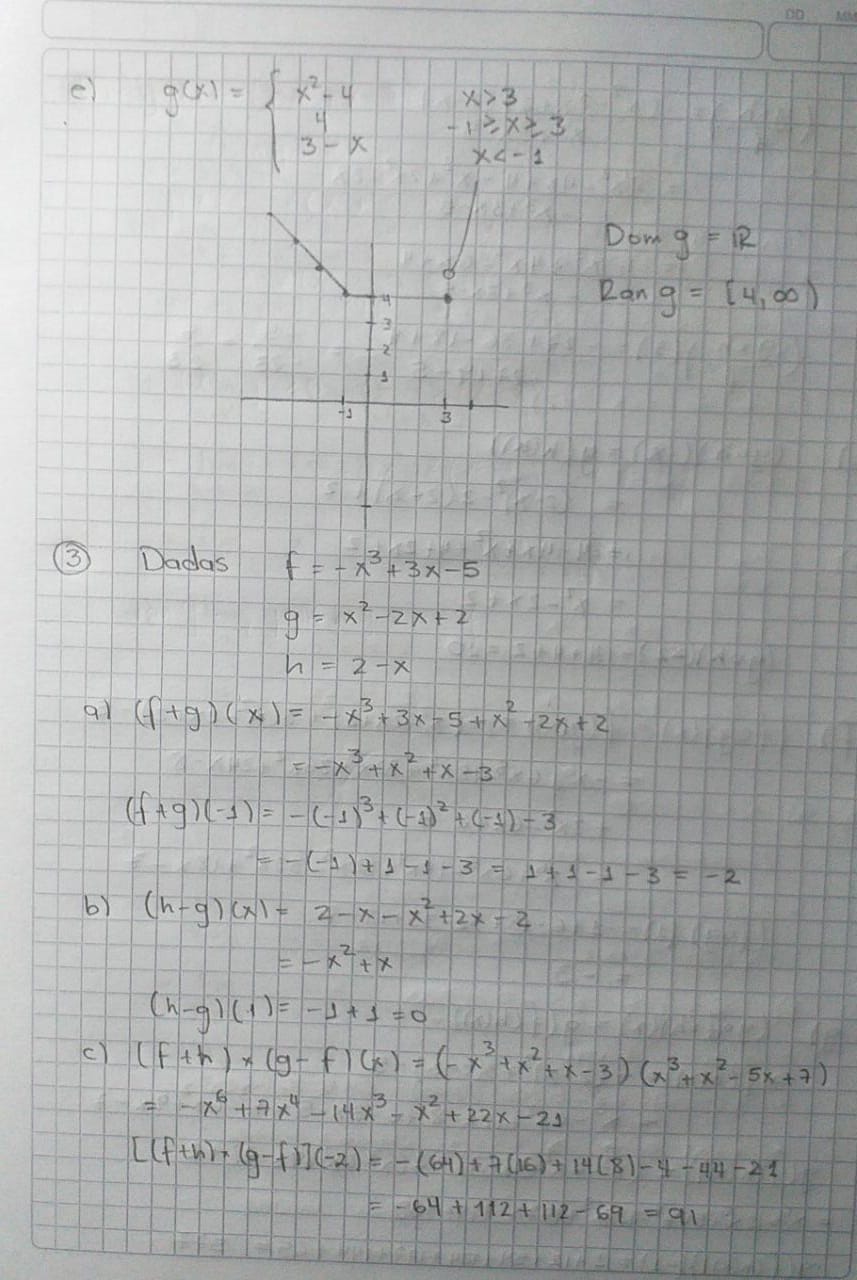 DD MM
e) g(x) = { x² - 4 x > 3
4 -1 ≥ x ≥ 3
3 - x x < -1
Dom g = ℝ
Ran g = [4, ∞)
4
3
2
1
-1 3
③ Dadas f = -x³ + 3x - 5
g = x² - 2x + 2
h = 2 - x
a) (f+g)(x) = -x³ + 3x - 5 + x² - 2x + 2
= -x³ + x² + x - 3
(f+g)(-1) = -(-1)³ + (-1)² + (-1) - 3
= -(-1) + 1 - 1 - 3 = 1 + 1 - 1 - 3 = -2
b) (h-g)(x) = 2 - x - x² + 2x - 2
= -x² + x
(h-g)(1) = -1 + 1 = 0
c) (f+h) * (g-f)(x) = (-x³ + x² + x - 3)(x³ + x² - 5x + 7)
= -x⁶ + 7x⁴ - 14x³ - x² + 22x - 21
[(f+h) * (g-f)](-2) = -(64) + 7(16) + 14(8) - 4 - 44 - 21
= -64 + 112 + 112 - 69 = 91